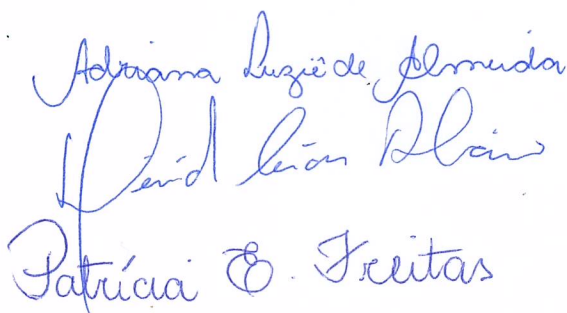 Adriana Luziê de Almeida
David
Patrícia E. Freitas